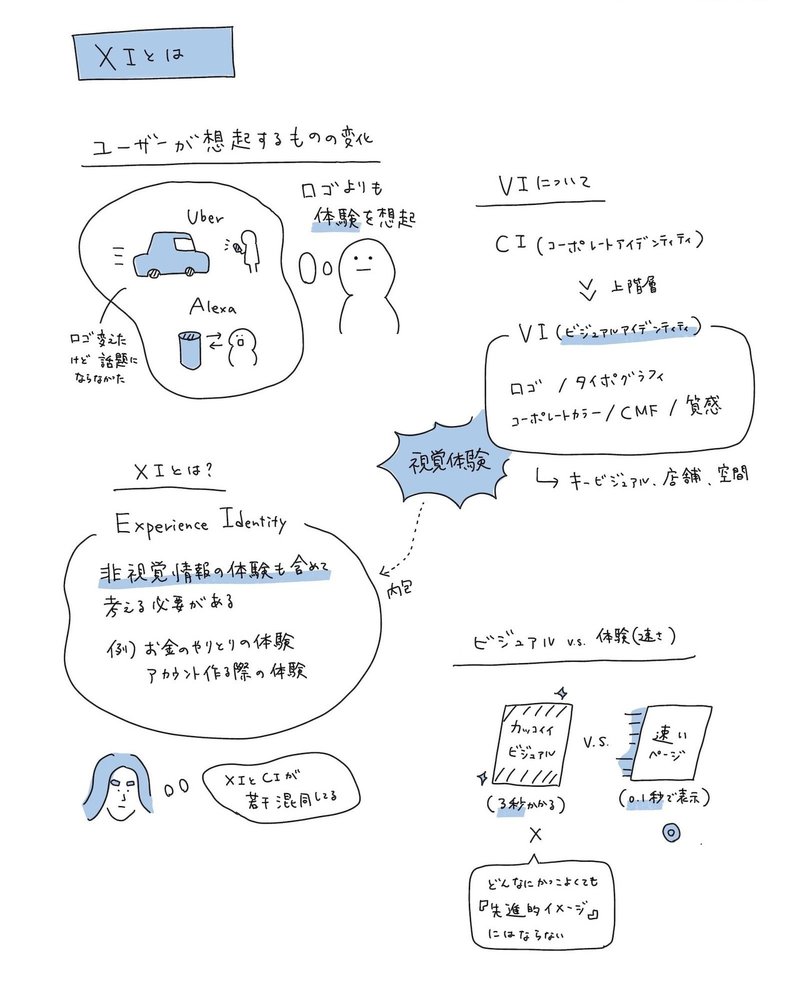 XIとは
ユーザーが想起するものの変化
Uber
Alexa
ロゴ変えた
けど 話題に
ならなかった
ロゴよりも
体験を想起
VIについて
CI (コーポレートアイデンティティ)
上階層
VI (ビジュアルアイデンティティ)
ロゴ / タイポグラフィ
コーポレートカラー / CMF / 質感
視覚体験
キービジュアル、店舗、空間
XIとは?
Experience Identity
非視覚情報の体験も含めて
考える必要がある
例) お金のやりとりの体験
アカウント作る際の体験
内包
XIとCIが
若干混同してる
ビジュアル v.s. 体験(速さ)
カッコイイ
ビジュアル
V.S.
速い
ページ
(3秒かかる)
(0.1秒で表示)
×
◎
どんなにかっこよくても
『先進的イメージ』
にはならない